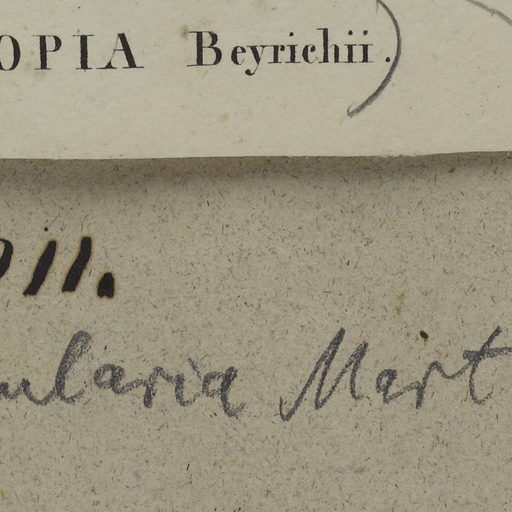 OPIA Beyrichii.)
11.
ularia Mart